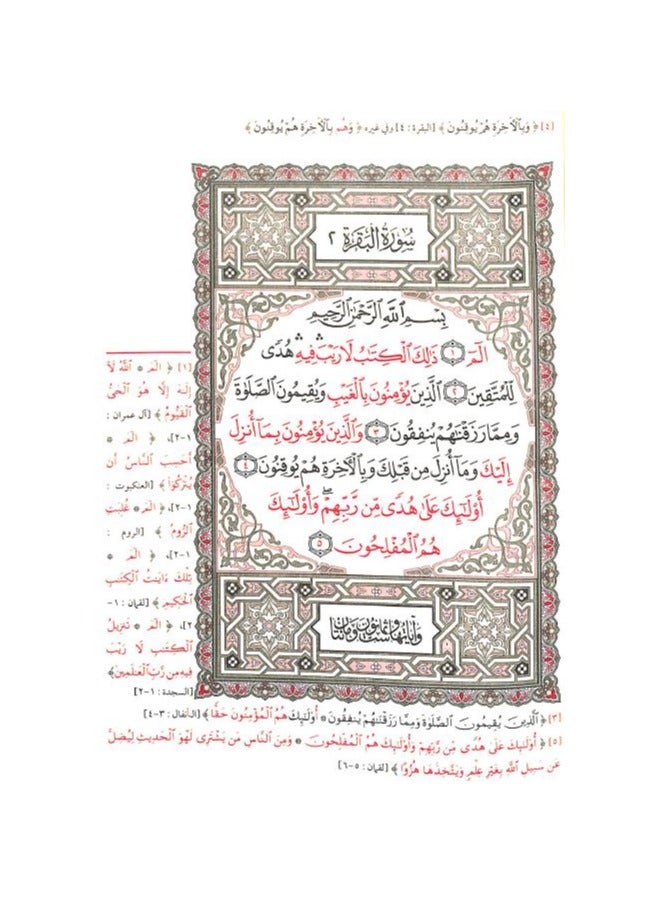 [٤] ﴿ وَبِالْآخِرَةِ هُمْ يُوقِنُونَ ﴾ [البقرة : ٤] وفي غيره ﴿ وَهُم بِالْآخِرَةِ هُمْ يُوقِنُونَ ﴾
سُورَةُ الْبَقَرَةِ ٢
بِسْمِ اللَّهِ الرَّحْمَٰنِ الرَّحِيمِ
الٓمٓ ١ ذَٰلِكَ الْكِتَٰبُ لَا رَيْبَ ۛ فِيهِ ۛ هُدًى
لِّلْمُتَّقِينَ ٢ الَّذِينَ يُؤْمِنُونَ بِالْغَيْبِ وَيُقِيمُونَ الصَّلَوٰةَ
وَمِمَّا رَزَقْنَٰهُمْ يُنفِقُونَ ٣ وَالَّذِينَ يُؤْمِنُونَ بِمَا أُنزِلَ
إِلَيْكَ وَمَا أُنزِلَ مِن قَبْلِكَ وَبِالْآخِرَةِ هُمْ يُوقِنُونَ ٤
أُوْلَٰئِكَ عَلَىٰ هُدًى مِّن رَّبِّهِمْ ۖ وَأُوْلَٰئِكَ
هُمُ الْمُفْلِحُونَ ٥
وآياتها ست وثمانون ومائتان
[١] ﴿ الٓمٓ * اللَّهُ لَا
إِلَٰهَ إِلَّا هُوَ الْحَيُّ
الْقَيُّومُ ﴾ [آل عمران :
١-٢]، ﴿ الٓمٓ *
أَحَسِبَ النَّاسُ أَن
يُتْرَكُوٓا ﴾ [العنكبوت :
١-٢]، ﴿ الٓمٓ * غُلِبَتِ
الرُّومُ ﴾ [الروم :
١-٢]، ﴿ الٓمٓ *
تِلْكَ ءَايَٰتُ الْكِتَٰبِ
الْحَكِيمِ ﴾ [لقمان : ١-
٢]، ﴿ الٓمٓ * تَنزِيلُ
الْكِتَٰبِ لَا رَيْبَ
فِيهِ مِن رَّبِّ الْعَٰلَمِينَ ﴾
[السجدة : ١-٢]
[٣] ﴿ الَّذِينَ يُقِيمُونَ الصَّلَوٰةَ وَمِمَّا رَزَقْنَٰهُمْ يُنفِقُونَ * أُوْلَٰئِكَ هُمُ الْمُؤْمِنُونَ حَقًّا ﴾ [الأنفال : ٣-٤]
[٥] ﴿ أُوْلَٰئِكَ عَلَىٰ هُدًى مِّن رَّبِّهِمْ وَأُوْلَٰئِكَ هُمُ الْمُفْلِحُونَ * وَمِنَ النَّاسِ مَن يَشْتَرِى لَهْوَ الْحَدِيثِ لِيُضِلَّ
عَن سَبِيلِ اللَّهِ بِغَيْرِ عِلْمٍ وَيَتَّخِذَهَا هُزُوًا ﴾ [لقمان : ٥-٦]